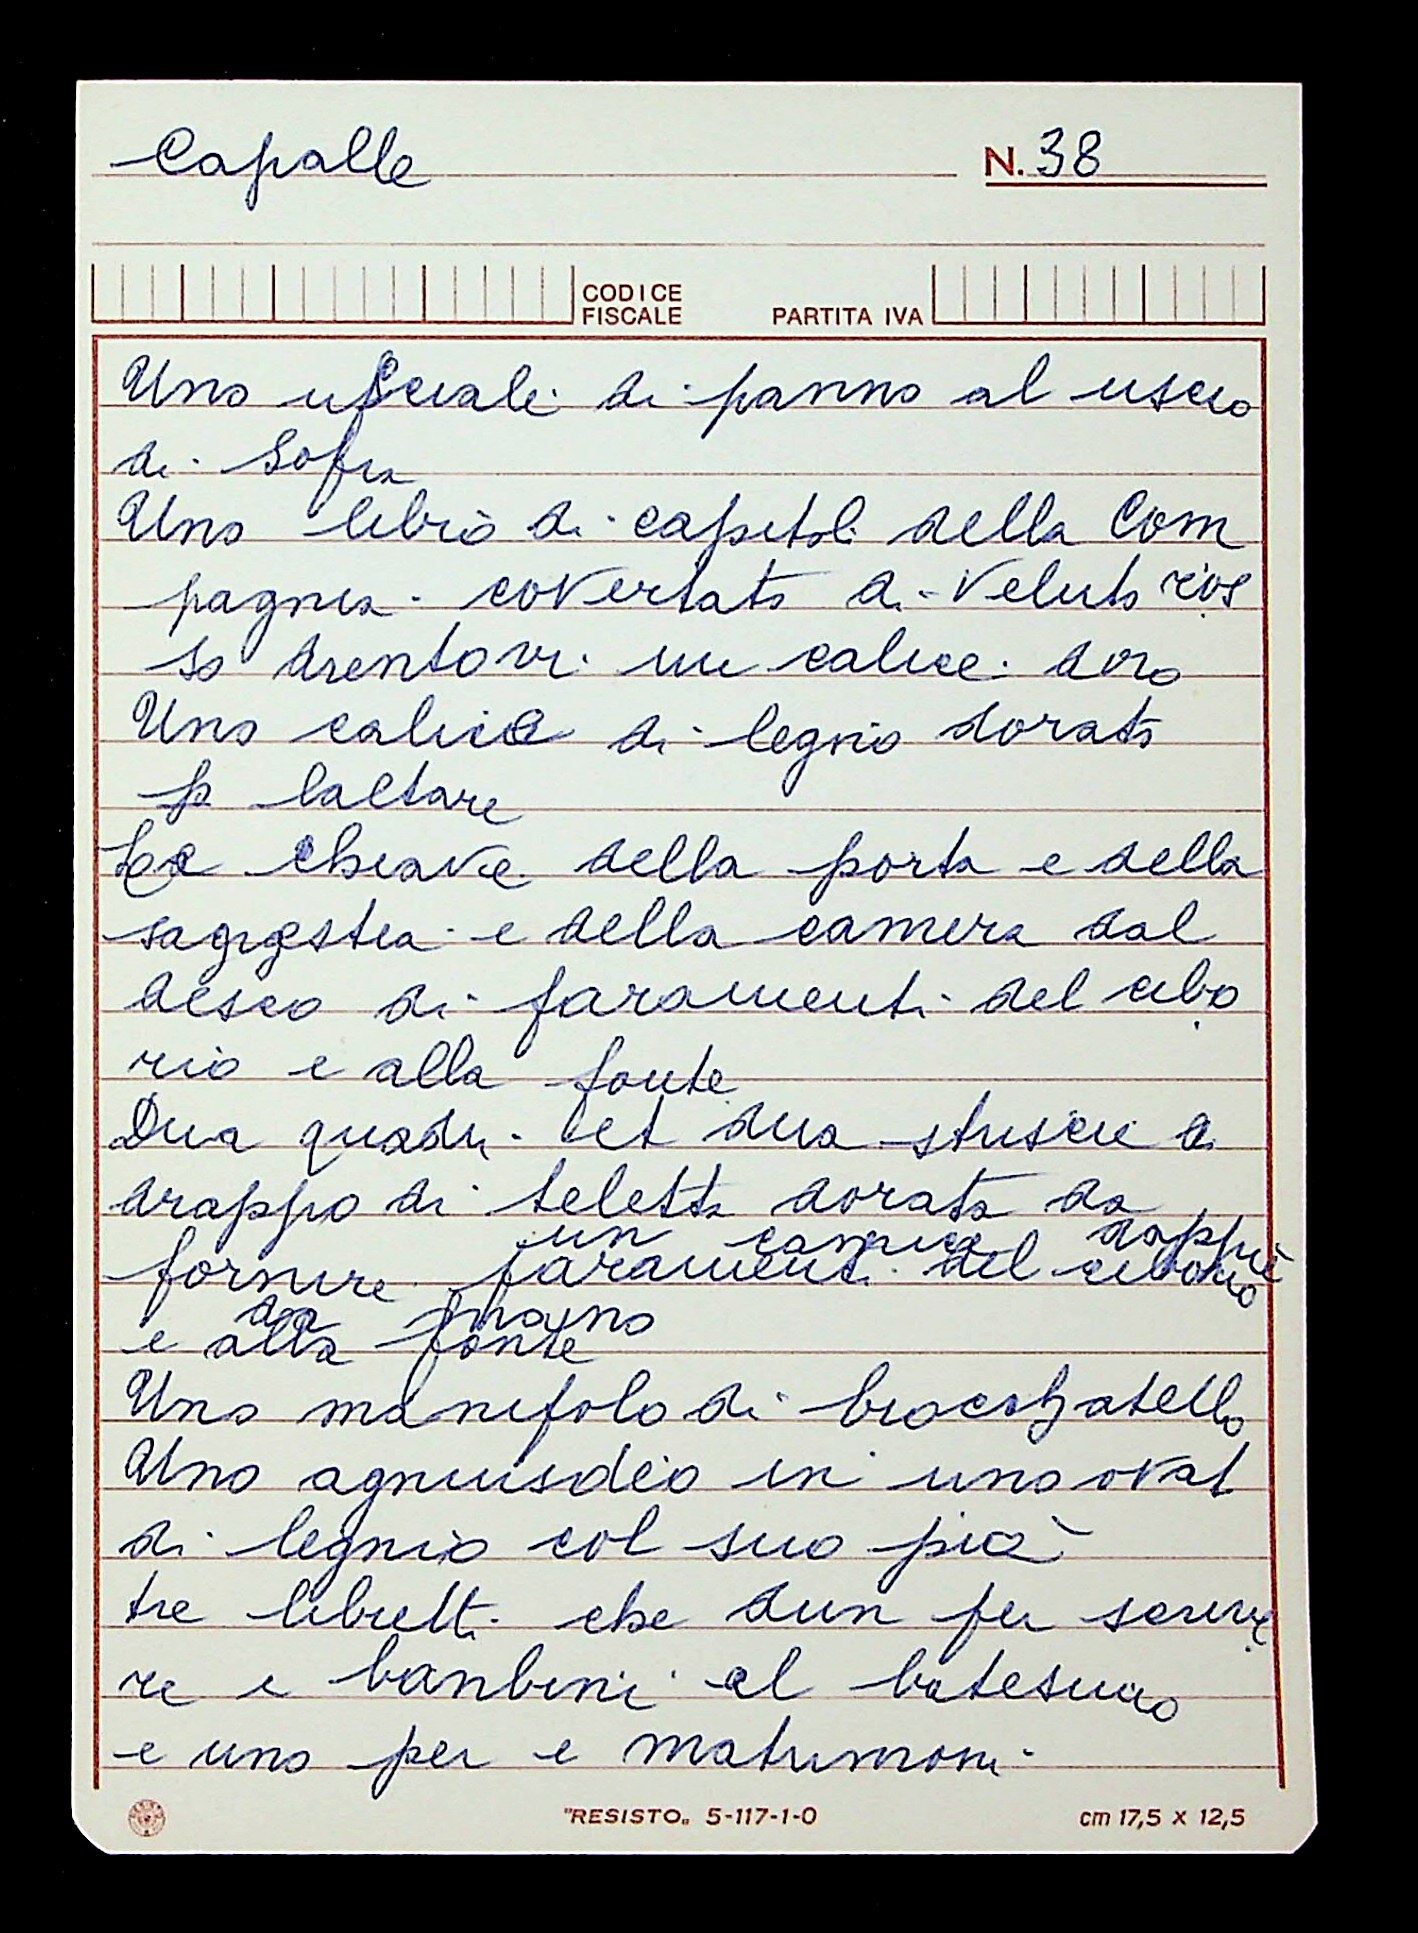 Capalle
N. 38
CODICE
FISCALE
PARTITA IVA
Uno usciale di panno al uscio
di sofra
Uno libro di capitoli della Com
pagnia covertato di veluto ros
so drentovi un calice doro
Uno calice di legnio dorato
p laltare
La chiave della porta e della
sagrestia e della camera dal
desco di faramenti del cibo
rio e alla fonte
Dua quadri et dua striscie di
drappo di teletta dorata da
un camice dappiè
fornire faramenti del ciborio
da mano
e alla fonte
Uno manipolo di brocchatello
Uno agniusdeio in uno ovat
di legnio col suo piè
tre libretti che dun per scrive
re e banbini al batesimo
e uno per e matrimoni
"RESISTO" 5-117-1-0
cm 17,5 x 12,5